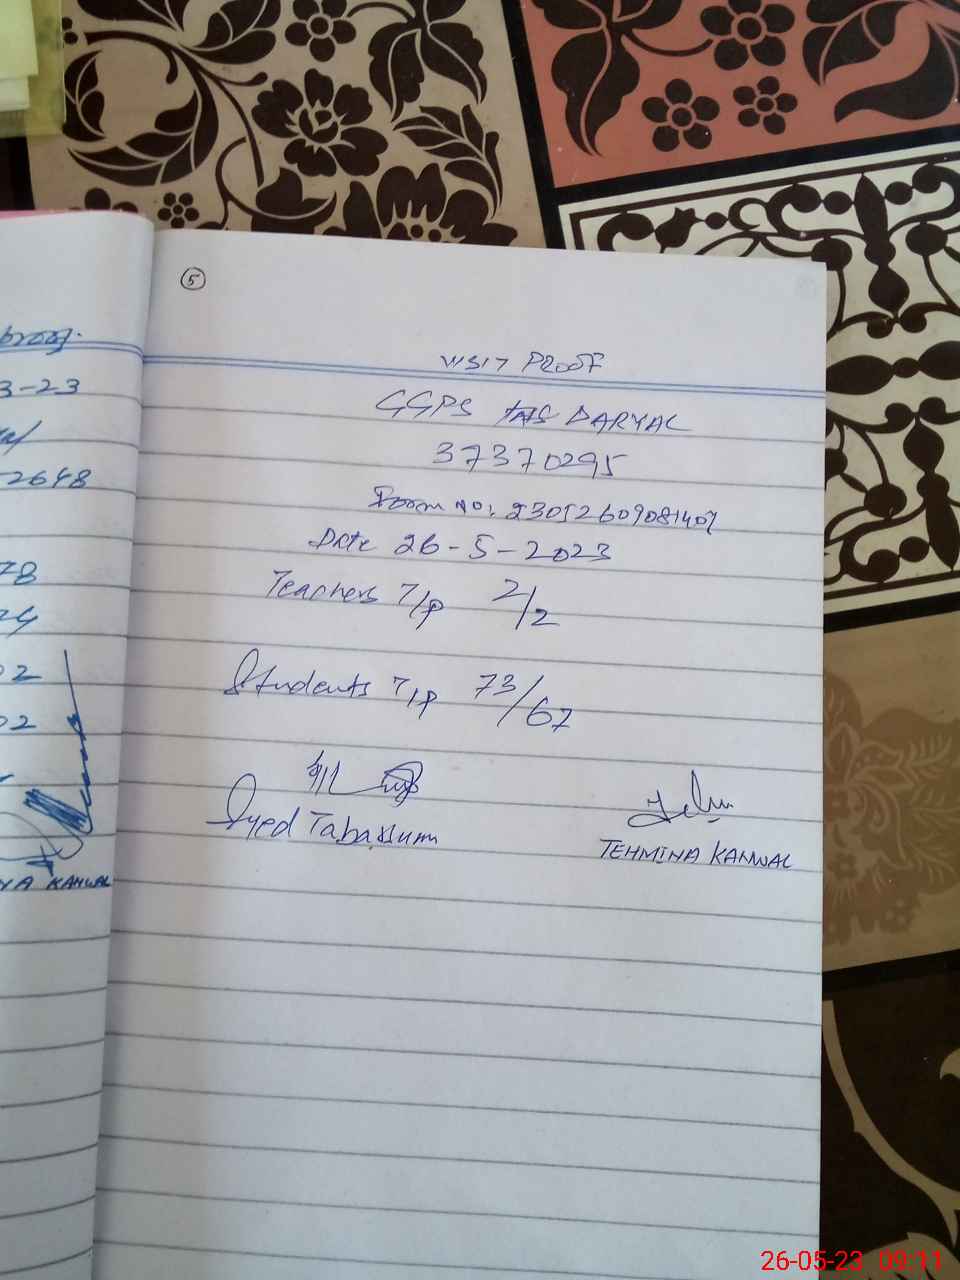 broof.
3-23
2648
78
02
02
YA KANWAL
5
VISIT PROOF
GGPS DARYAL
37370295
Form No: 23052609081407
Date 26-5-2023
Teachers T/P 2/2
Students T/P 73/67
Syed Tabassum
TEHMINA KANWAL
26-05-23 09:11